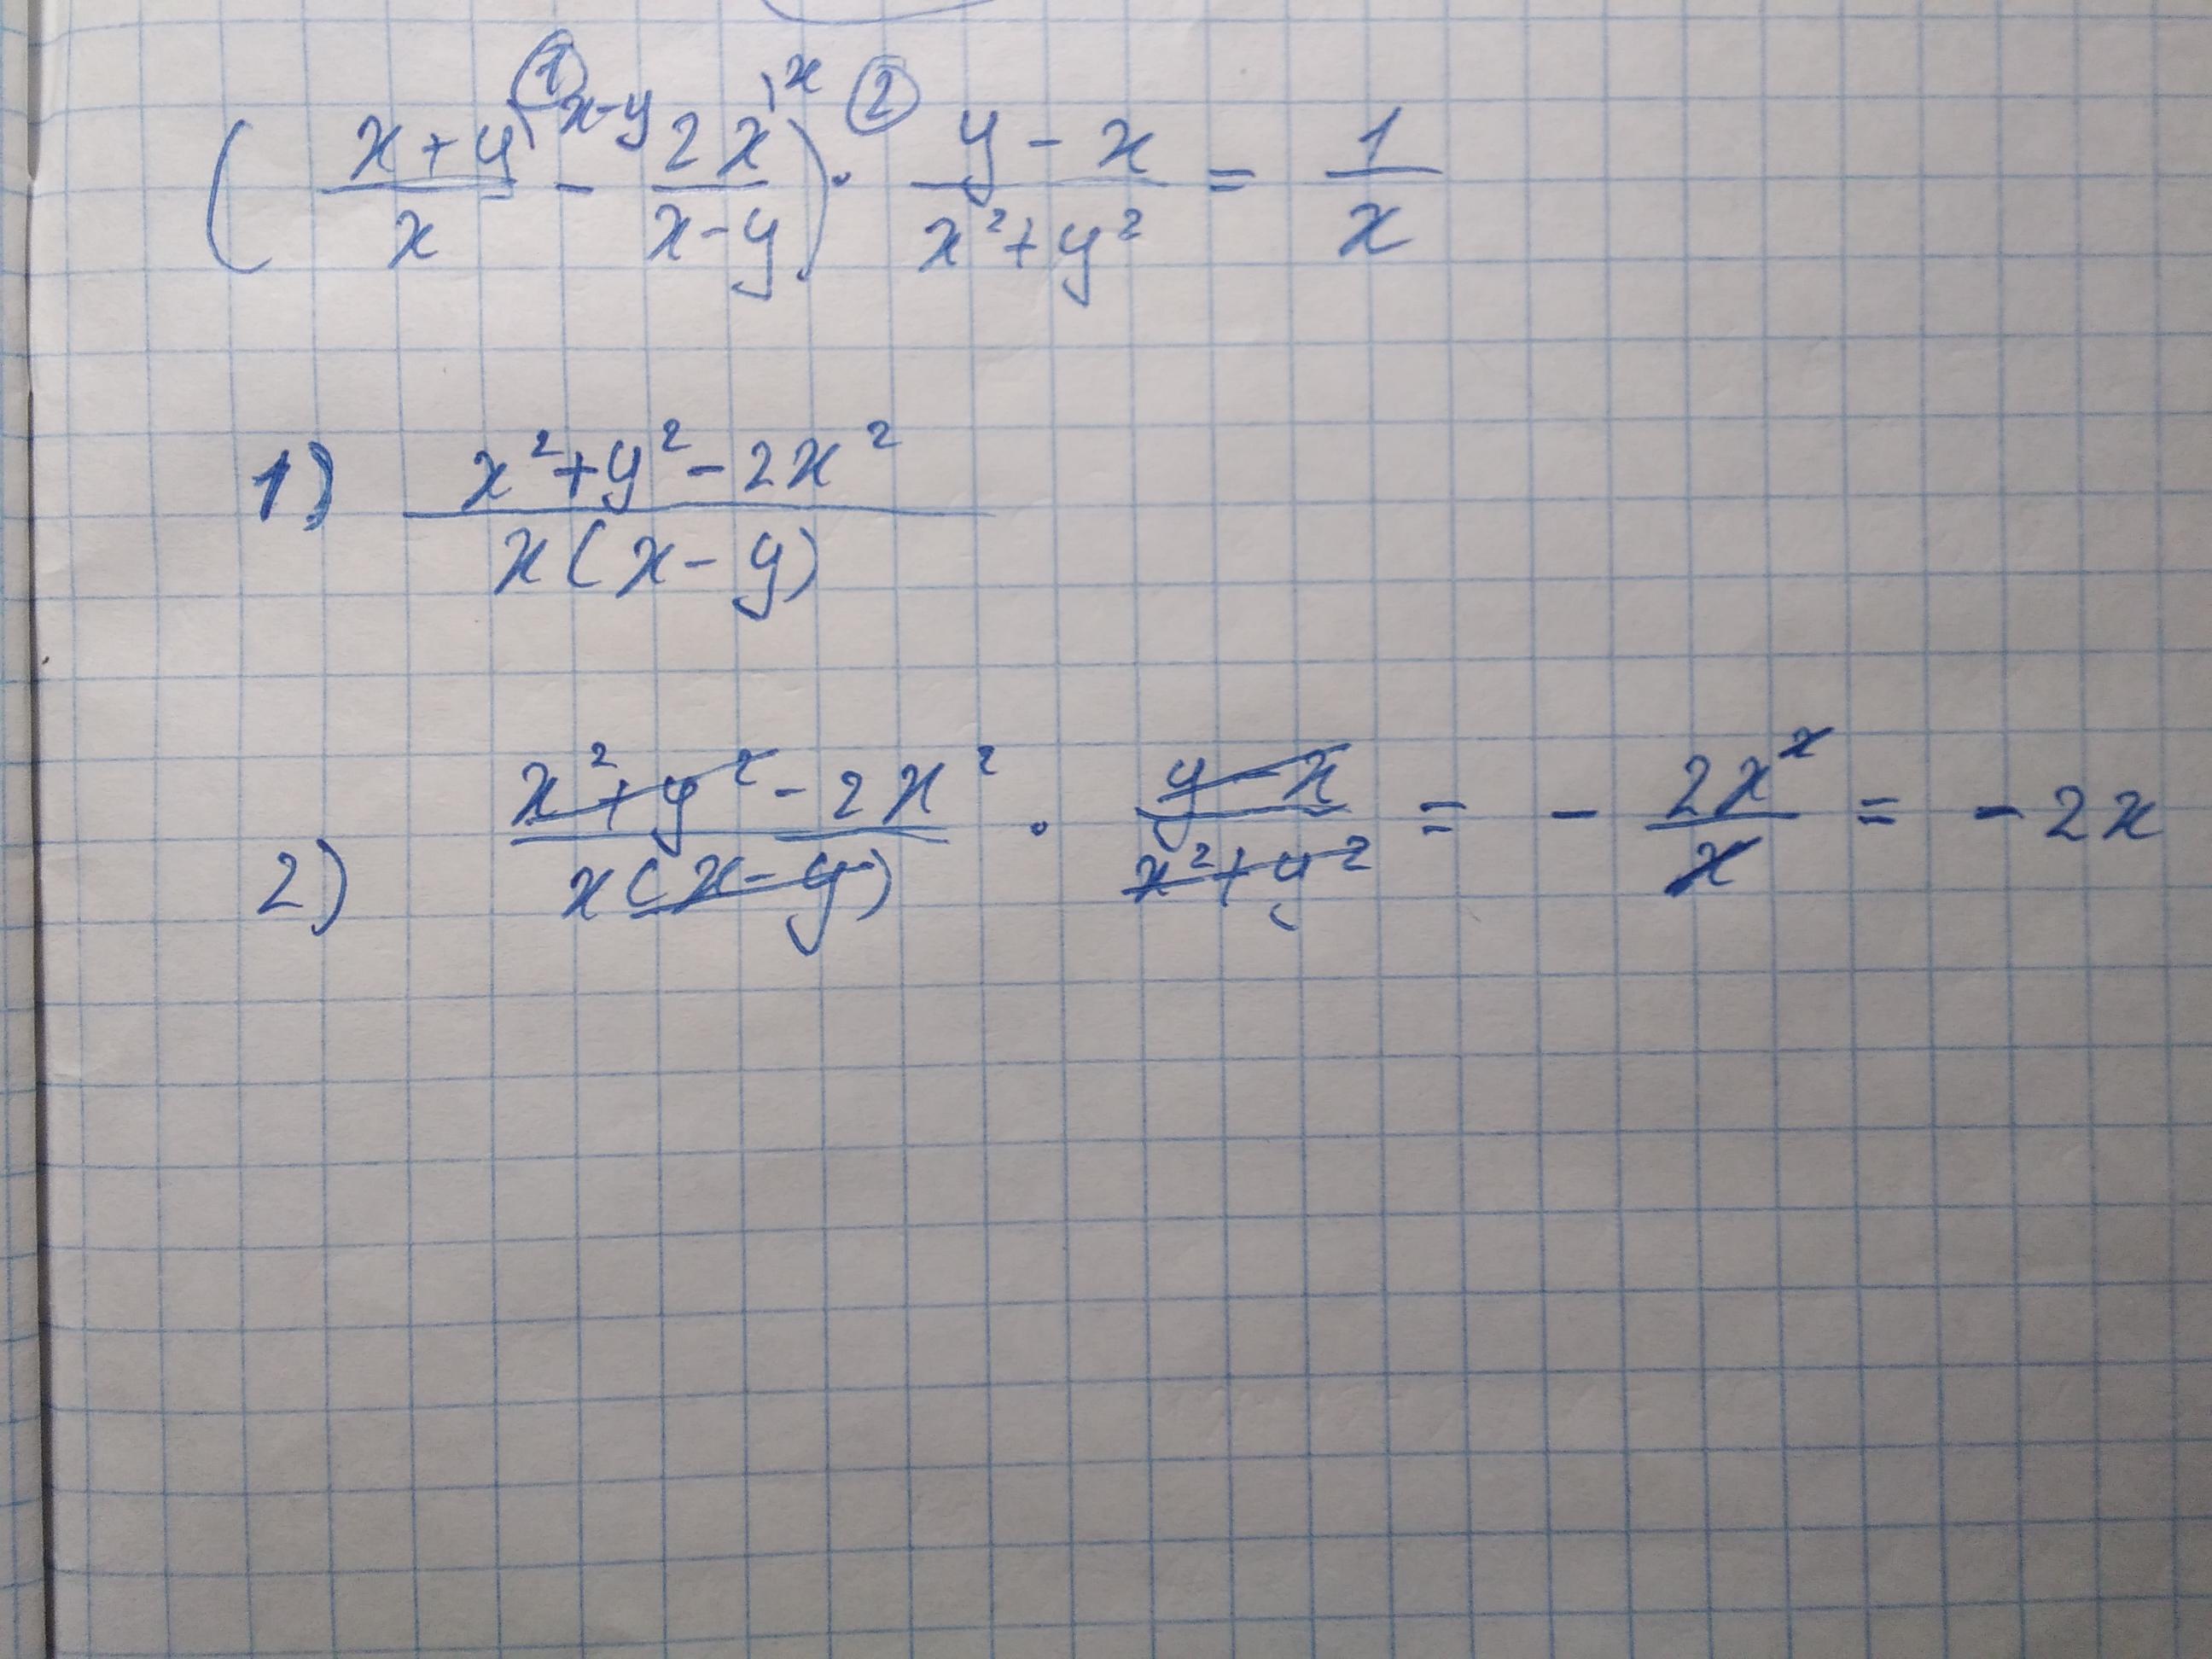 ① \x-y \x ②
( (x+y)/x - 2x/(x-y) ) · (y-x)/(x²+y²) = 1/x
1) (x²+y²-2x²)/(x(x-y))
2) (x²+y²-2x²)/(x(x-y)) · (y-x)/(x²+y²) = - 2xˣ/x = -2x